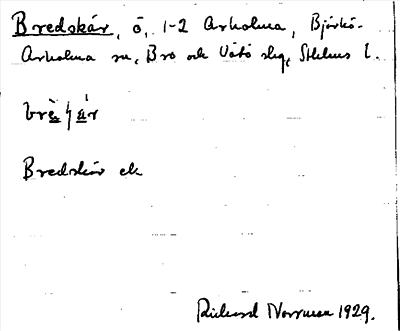 Bredskär, ö, 1-2 Arholma, Björkö-
Arholma sn, Bro och Vätö skg, Sthlms l.
Bredskär ek
Rickard Norrman 1929.